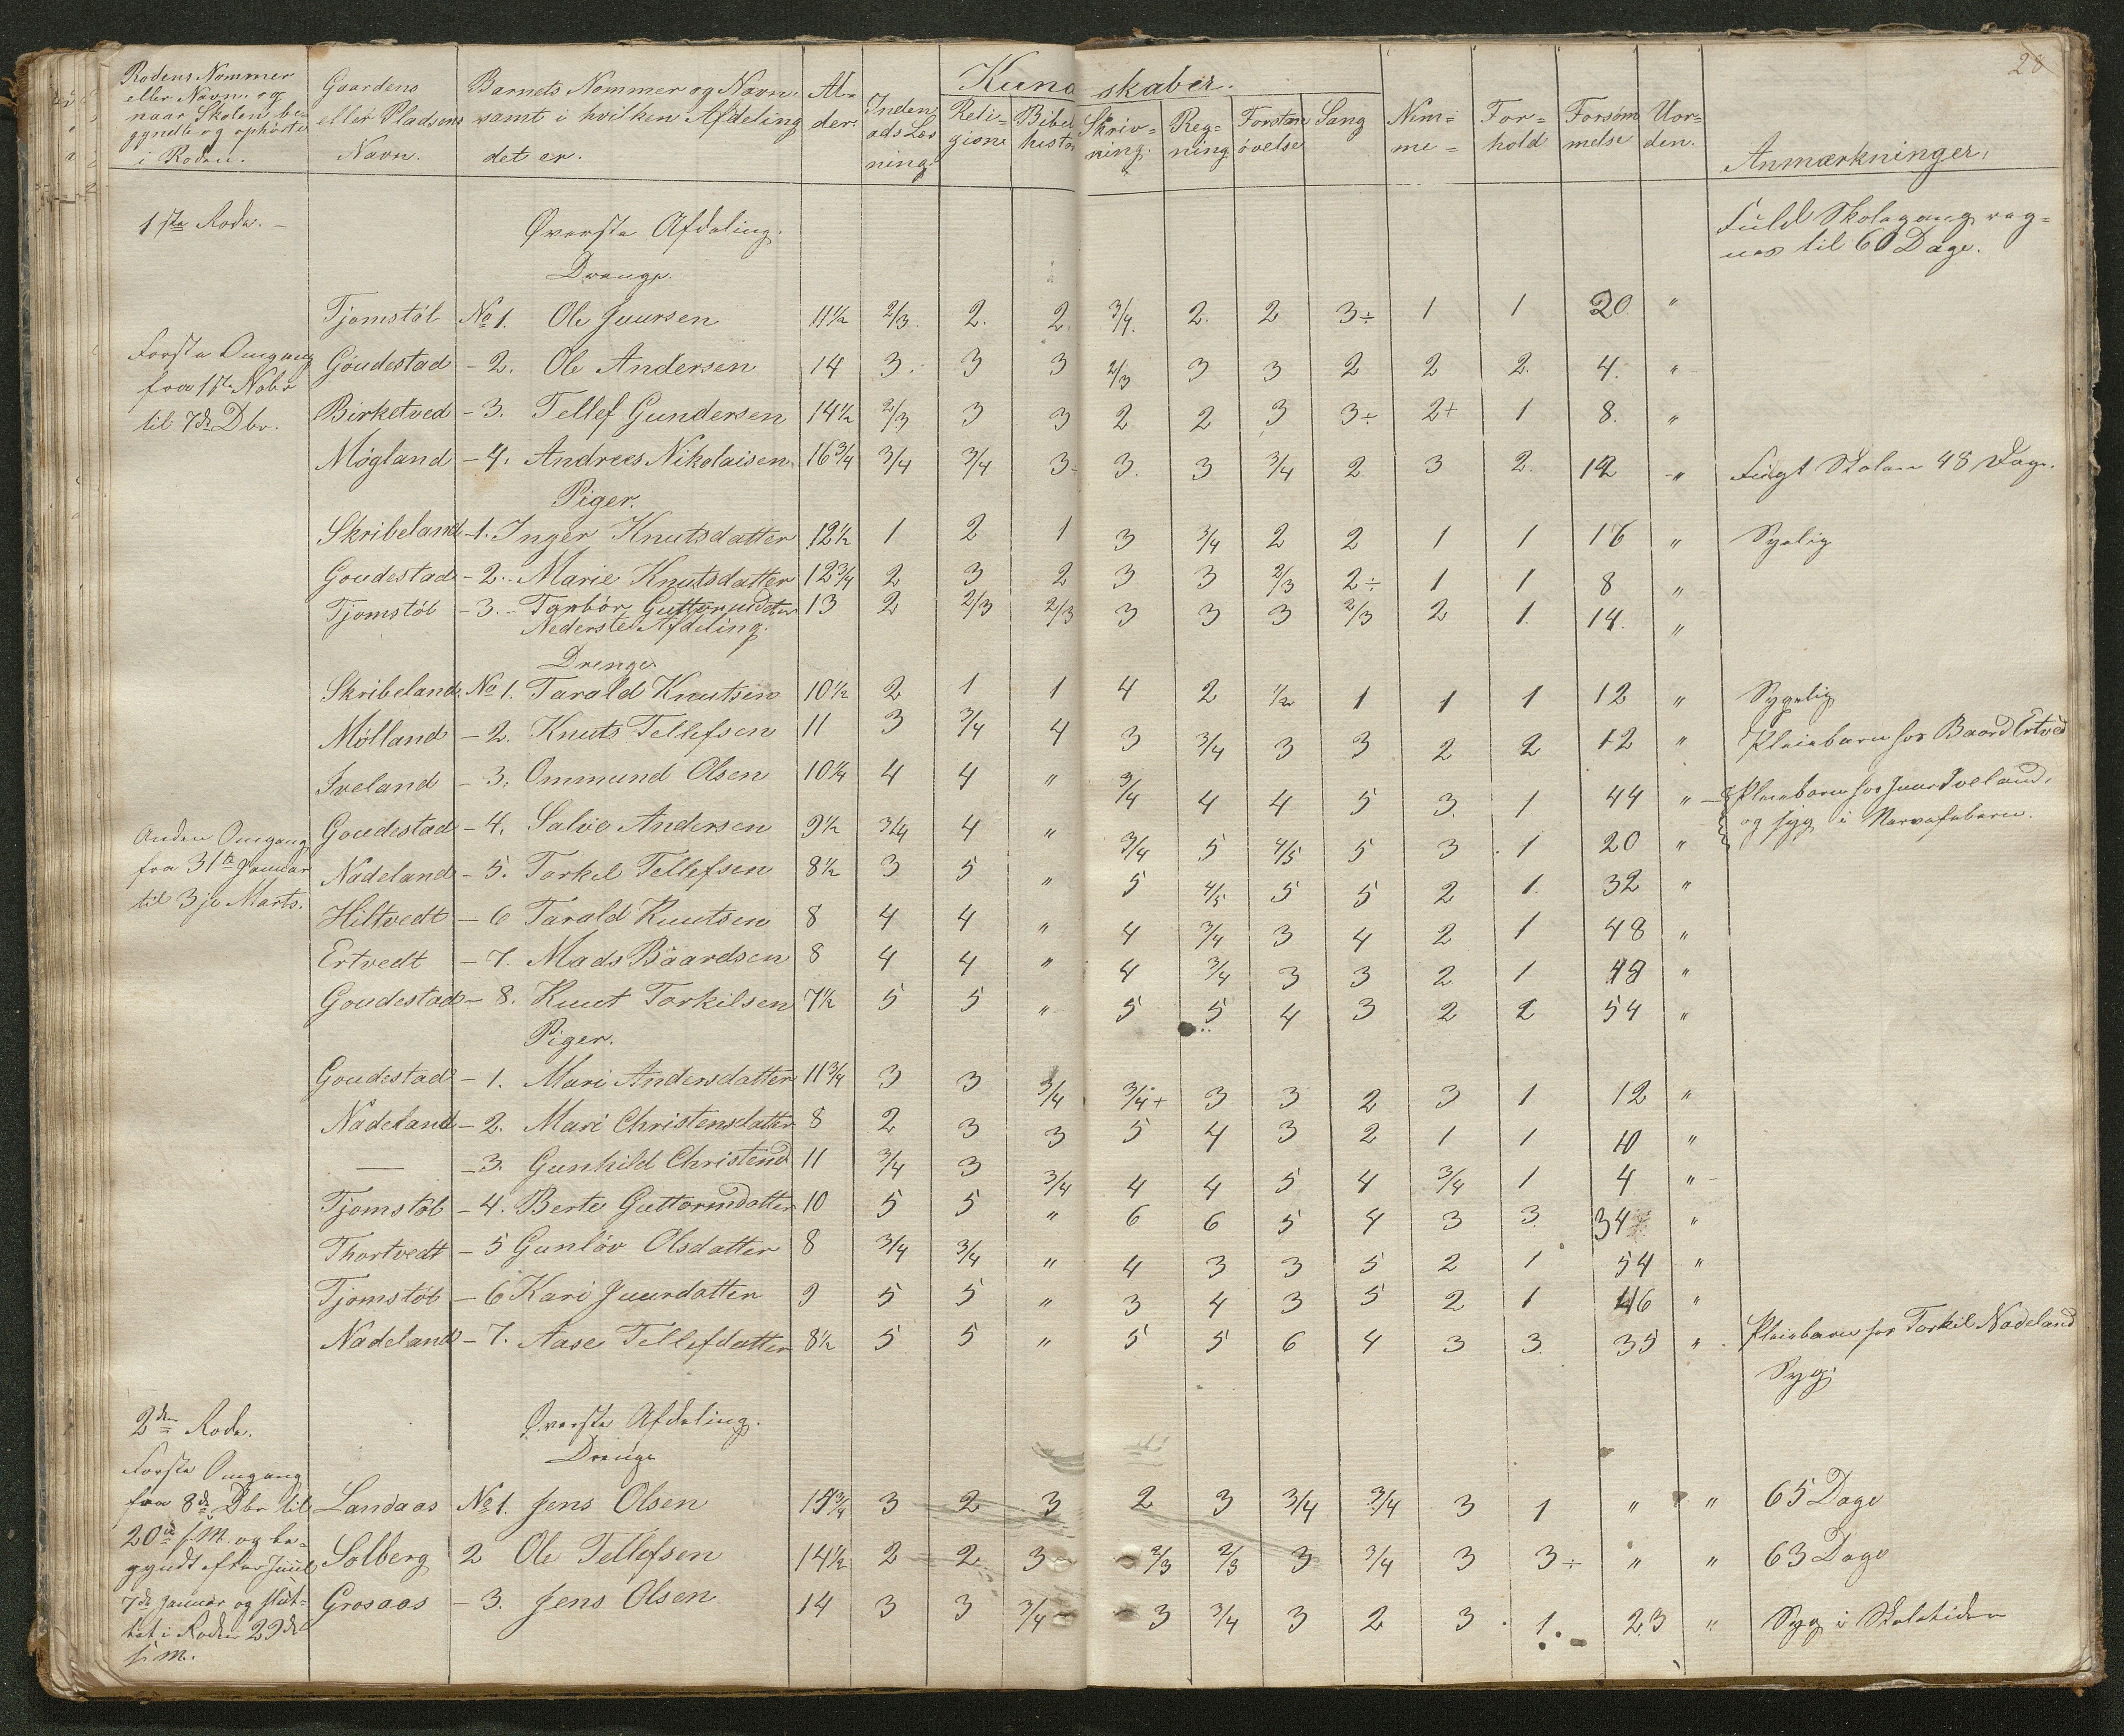 28
Rodens Nommer eller Navn og naar Skolen begyndte og ophørte i Roden. | Gaardens eller Pladsens Navn. | Barnets Nommer og Navn samt i hvilken Afdeling det er. | Alder. | Kundskaber. | Nemme | Forhold | Forsømmelse | Uorden. | Anmærkninger.
Indenads Læsning. | Religion | Bibelhistorie | Skrivning. | Regning | Forstandsøvelse | Sang
1ste Rode. | Øverste Afdeling. | Fuld Skolegang reg=
Drenge. | nes til 60 Dage.
Tjomstøl | No 1. Ole Juursen | 11½ | 2/3. | 2. | 2. | 3/4. | 2. | 2 | 3÷ | 1 | 1 | 20 | "
Første Omgang fra 1ste Nobr til 7de Dbr.
Goudestad | - 2. Ole Andersen | 14 | 3. | 3 | 3 | 2/3 | 3 | 3 | 2 | 2 | 2. | 4. | "
Birketved | - 3. Tellef Gundersen | 14½ | 2/3 | 3 | 3 | 2 | 2 | 3 | 3÷ | 2+ | 1 | 8. | "
Møgland | - 4. Andreas Nikolaisen | 16¾ | 3/4 | 3/4 | 3 | 3. | 3 | 3/4 | 2 | 3 | 2. | 12 | " | Søgt Skolen 48 Dage.
Piger.
Skribeland | - 1. Inger Knutsdatter | 12½ | 1 | 2 | 1 | 3 | 3/4 | 2 | 2 | 1 | 1 | 16 | " | Sygelig
Goudestad | - 2. Marie Knutsdatter | 12¾ | 2 | 3 | 2 | 3 | 3 | 2/3 | 2÷ | 1 | 1 | 8 | "
Tjomstøl | - 3. Torbor Guttormsdatter | 13 | 2 | 2/3 | 2/3 | 3 | 3 | 3 | 2/3 | 2 | 1. | 14. | "
Nederste Afdeling.
Drenge
Skribeland | No 1. Tarald Knutsen | 10½ | 2 | 1 | 1 | 4 | 2 | 1/2 | 1 | 1 | 1 | 12 | " | Sygelig
Mølland | - 2. Knuts Tellefsen | 11 | 3 | 3/4 | 4 | 3 | 3/4 | 3 | 3 | 2 | 2 | 12 | " | Pleiebarn hos Baard Ertved
Iveland | - 3. Ommund Olsen | 10¼ | 4 | 4 | " | 3/4 | 4 | 4 | 5 | 3. | 1 | 44 | " | Pleiebarn hos Juur Iveland,
og syg i Nervefeberen.
Goudestad | - 4. Salve Andersen | 9½ | 3/4 | 4 | " | 3/4 | 5 | 4/5 | 5 | 3 | 1 | 20 | "
Anden Omgang fra 31te Januar til 3je Marts.
Nadeland | - 5. Torkel Tellefsen | 8½ | 3 | 5 | " | 5 | 4/5 | 5 | 5 | 2 | 1. | 32 | "
Hiltvedt | - 6 Tarald Knutsen | 8 | 4 | 4 | " | 4 | 3/4 | 3 | 4 | 2 | 1 | 48 | "
Ertvedt | - 7. Mads Baardsen | 8 | 4 | 4 | " | 4 | 3/4 | 3 | 3 | 2 | 1 | 48 | "
Goudestad | - 8. Knut Torkilsen | 7½ | 5 | 5 | " | 5 | 5 | 4 | 3 | 2 | 2 | 54 | "
Piger.
Goudestad | - 1. Mari Andersdatter | 11¾ | 3 | 3 | 3/4 | 3/4+ | 3 | 3 | 2 | 3 | 1 | 12 | "
Nadeland | - 2. Mari Christensdatter | 8 | 2 | 3 | 3 | 5 | 4 | 3 | 2 | 1 | 1 | 10 | "
— | - 3. Gunhild Christensd | 11 | 3/4 | 3 | 3/4 | 4 | 4 | 5 | 4 | 3/4 | 1 | 4 | "
Tjomstøl | - 4. Berte Guttormdatter | 10 | 5 | 5 | " | 6 | 6 | 5 | 4 | 3 | 3. | 34 | "
Thortvedt | - 5 Gunløv Olsdatter | 8 | 3/4 | 3/4 | " | 4 | 3 | 3 | 5 | 2 | 1 | 54 | "
Tjomstøl | - 6 Kari Juurdatter | 9 | 5 | 5 | " | 3 | 4 | 3 | 5 | 2 | 1 | 46 | "
Nadeland | - 7. Aase Tellefdatter | 8½ | 5 | 5 | " | 5 | 5 | 6 | 4 | 3 | 3. | 35 | " | Pleiebarn hos Torkil Nadeland
Syg.
2den Rode. | Øverste Afdeling.
Drenge
Første Omgang fra 8de Dbr til 20de s. M. og begyndt efter Juul 7de Januar og sluttet i Roden 29de s. M.
Landaas | No 1. Jens Olsen | 15¾ | 3 | 2 | 3 | 2 | 3 | 3/4 | 3/4 | 3 | 1 | " | " | 65 Dage
Solberg | 2 Ole Tellefsen | 14½ | 2 | 2 | 3 | 2/3 | 2/3 | 3 | 3/4 | 3 | 3÷ | " | " | 63 Dage
Grosaas | - 3. Jens Olsen | 14 | 3 | 3 | 3/4 | 3 | 3/4 | 3 | 2 | 3 | 1. | 23 | " | Syg i Skoletiden